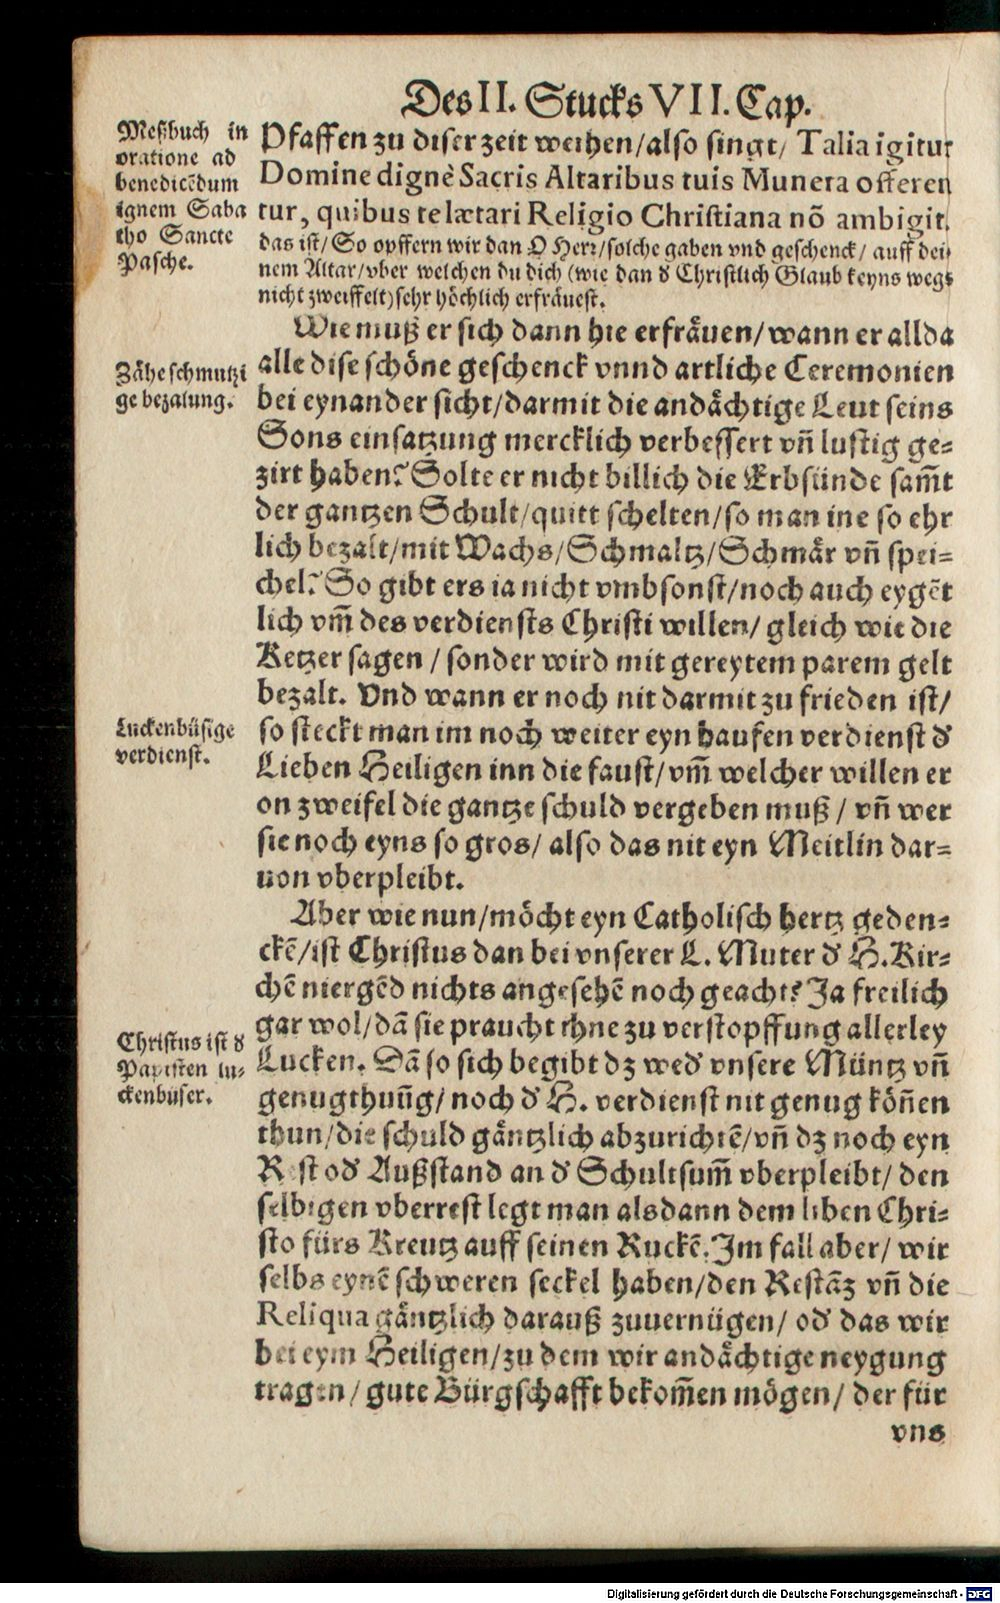 Des II. Stucks VII. Cap.
Meßbuch in
oratione ad
benedicēdum
ignem Saba
tho Sancte
Pasche.
Pfaffen zu diser zeit weihen/also singt/ Talia igitur
Domine dignè Sacris Altaribus tuis Munera offeren
tur, quibus te lætari Religio Christiana nō ambigit.
das ist/ So opffern wir dan O Herr/solche gaben vnd geschenck/ auff dei-
nem Altar/vber welchen du dich (wie dan d̕ Christlich Glaub keyns wegs
nicht zweiffelt) sehr höchlich erfräuest.
Wie muß er sich dann hie erfräuen/wann er allda
Zähe schmutzi
ge bezalung.
alle dise schöne geschenck vnnd artliche Ceremonien
bei eynander sicht/darmit die andächtige Leut seins
Sons einsatzung mercklich verbessert vn̄ lustig ge-
zirt haben? Solte er nicht billich die Erbsünde sam̄t
der gantzen Schult/quitt schelten/so man ine so ehr
lich bezalt/mit Wachs/Schmaltz/Schmär vn̄ spei-
chel? So gibt ers ia nicht vmbsonst/noch auch eygēt
lich vm̄ des verdiensts Christi willen/ gleich wie die
Ketzer sagen / sonder wird mit gereytem parem gelt
bezalt. Vnd wann er noch nit darmit zu frieden ist/
Luckenbüsige
verdienst.
so steckt man im noch weiter eyn haufen verdienst d̕
Lieben Heiligen inn die faust/vm̄ welcher willen er
on zweifel die gantze schuld vergeben muß / vn̄ wer
sie noch eyns so gros/ also das nit eyn Meitlin dar-
uon vberpleibt.
Aber wie nun/möcht eyn Catholisch hertz geden-
ckē/ist Christus dan bei vnserer L. Muter d̕ H. Kir-
chē niergēd nichts angesehē noch geacht? Ja freilich
Christus ist d̕
Papisten lu-
ckenbüser.
gar wol/dā sie praucht ihne zu verstopffung allerley
Lucken. Dā so sich begibt dz wed̕ vnsere Müntz vn̄
genugthuūg/ noch d̕ H. verdienst nit genug kön̄en
thun/die schuld gäntzlich abzurichtē/vn̄ dz noch eyn
Rest od̕ Außstand an d̕ Schultsum̄ vberpleibt/ den
selbigen vberrest legt man alsdann dem liben Chri-
sto fürs Kreutz auff seinen Ruckē. Im fall aber/ wir
selbs eynē schweren seckel haben/den Restāz vn̄ die
Reliqua gäntzlich darauß zuuernügen/ od̕ das wir
bei eym Heiligen/zu dem wir andächtige neygung
tragen / gute Bürgschafft bekom̄en mögen/ der für
vns
Digitalisierung gefördert durch die Deutsche Forschungsgemeinschaft - DFG